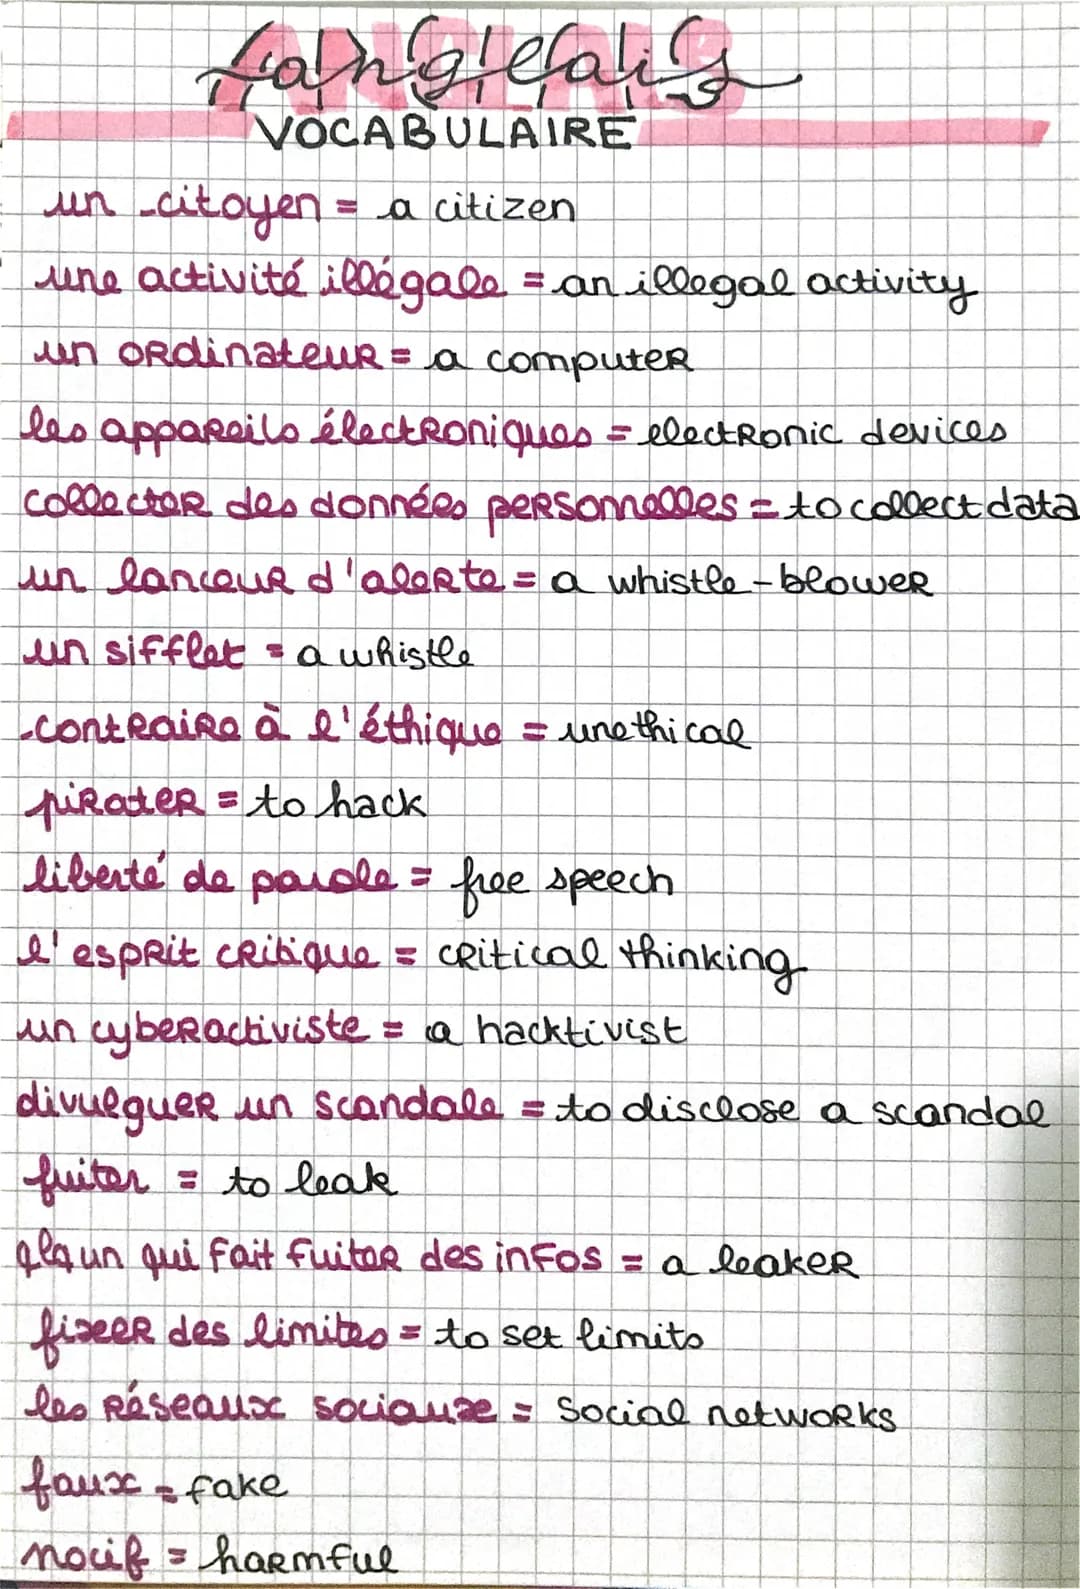 ANGLAIS
l'anglais
VOCABULAIRE
un citoyen = a citizen
une activité illégale = an illegal activity
un ordinateur = a computer
les appareils électroniques = electronic devices
collecter des données personnelles = to collect data
un lanceur d'alerte = a whistle-blower
un sifflet = a whistle
contraire à l'éthique = unethical
pirater = to hack
liberté de parole = free speech
l'esprit critique = critical thinking
un cyberactiviste = a hacktivist
divulguer un scandale = to disclose a scandal
fuiter = to leak
qlqun qui fait fuiter des infos = a leaker
fixer des limites = to set limits
les réseaux sociaux = social networks
faux = fake
nocif = harmful